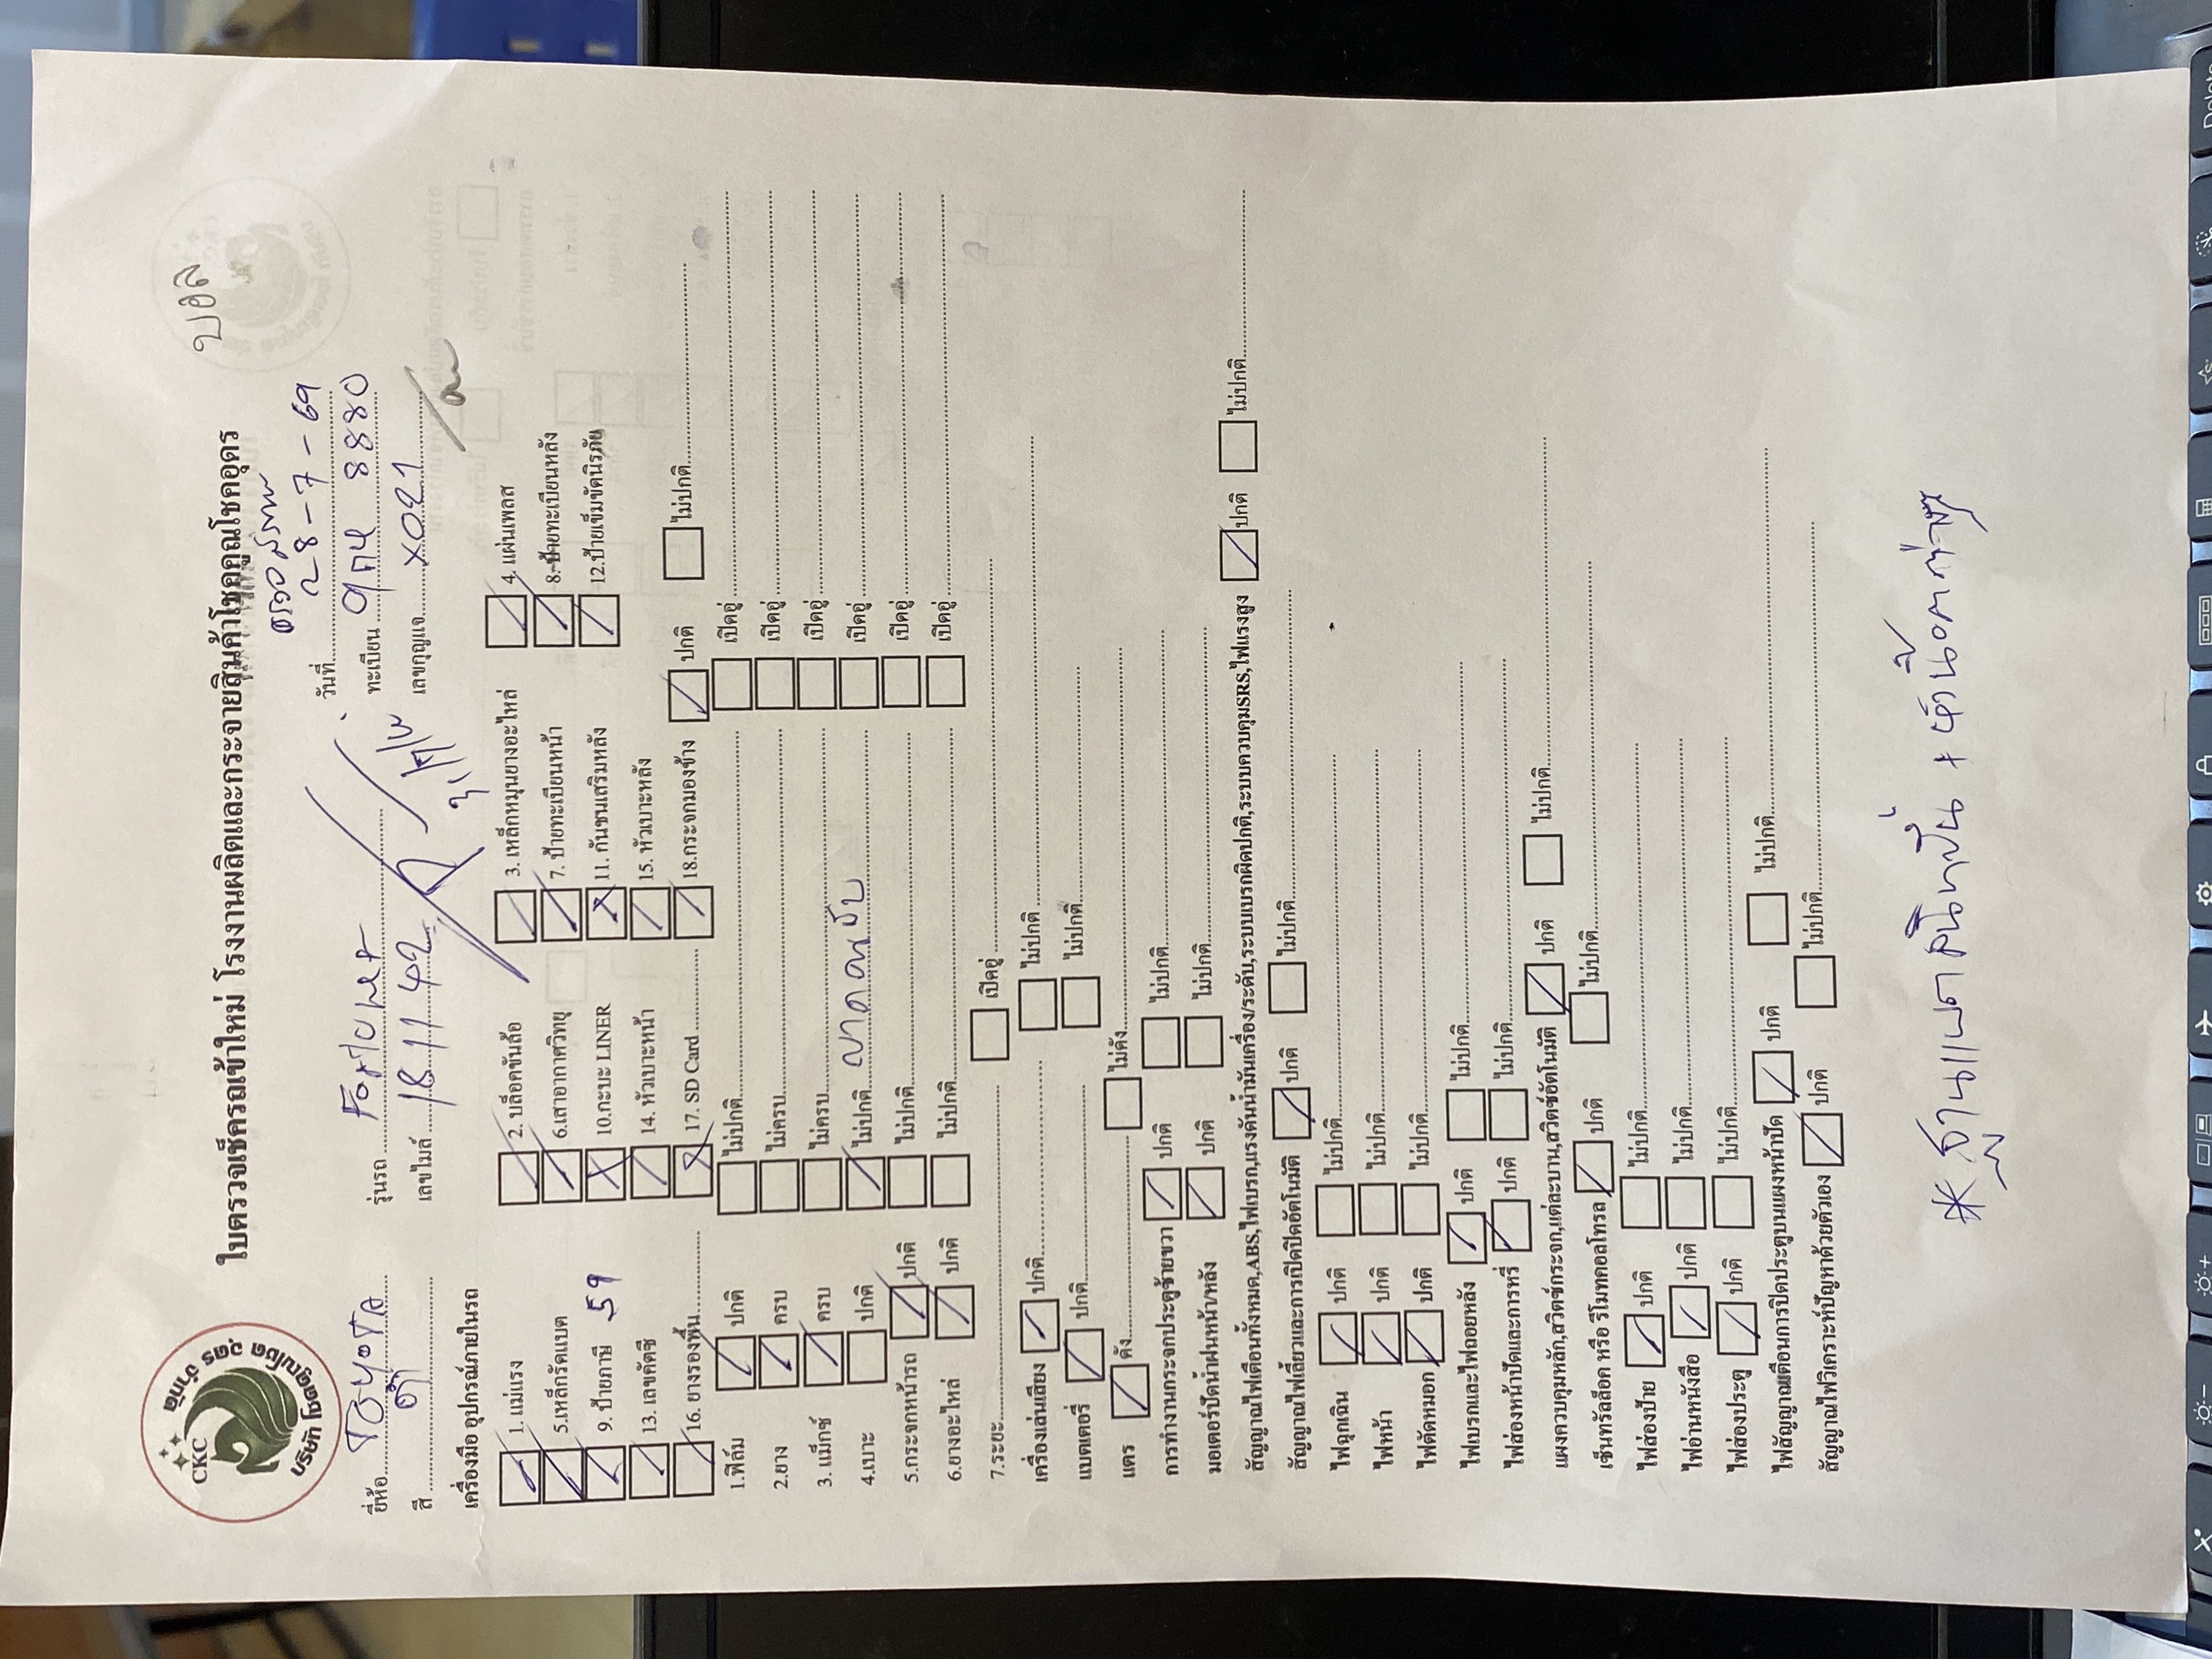 CKC
บริษัท โชคคูณโชค อุดร จำกัด
บอล
ใบตรวจเช็ครถเข้าใหม่ โรงงานผลิตและกระจายสินค้าโชคคูณโชคอุดร
ตรวจสภาพ
วันที่ 28-7-69
ยี่ห้อ TOYOTA รุ่นรถ Fortuner ทะเบียน 9กฬ 8880
สี ดำ เลขไมล์ 181142 เลขกุญแจ X021
เครื่องมือ อุปกรณ์ภายในรถ
1. แม่แรง 2. บล็อคขันล้อ 3. เหล็กหมุนยางอะไหล่ 4. แผ่นเพลส
5.เหล็กรัดแบต 6.เสาอากาศวิทยุ 7. ป้ายทะเบียนหน้า 8.ป้ายทะเบียนหลัง
9. ป้ายภาษี 59 10.กะบะ LINER 11. กันชนเสริมหลัง 12.ป้ายเข็มขัดนิรภัย
13. เลขคัตซี 14. หัวเบาะหน้า 15. หัวเบาะหลัง
16. ยางรองพื้น 17. SD Card 18.กระจกมองข้าง ปกติ ไม่ปกติ
1.ฟิล์ม ปกติ ไม่ปกติ เปิดอู่
2.ยาง ครบ ไม่ครบ เปิดอู่
3. แม็กซ์ ครบ ไม่ครบ เปิดอู่
4.เบาะ ปกติ ไม่ปกติ ขาดคนขับ เปิดอู่
5.กระจกหน้ารถ ปกติ ไม่ปกติ เปิดอู่
6.ยางอะไหล่ ปกติ ไม่ปกติ เปิดอู่
7.ระยะ เปิดอู่
เครื่องเล่นเสียง ปกติ ไม่ปกติ
แบตเตอรี่ ปกติ ไม่ปกติ
แตร ดัง ไม่ดัง
การทำงานกระจกประตูซ้ายขวา ปกติ ไม่ปกติ
มอเตอร์ปัดน้ำฝนหน้า/หลัง ปกติ ไม่ปกติ
สัญญาณไฟเตือนทั้งหมด,ABS,ไฟเบรก,แรงดันน้ำมันเครื่อง/ระดับ,ระบบเบรกผิดปกติ,ระบบควบคุมSRS,ไฟแรงสูง ปกติ ไม่ปกติ
สัญญาณไฟเลี้ยวและการเปิดปิดอัตโนมัติ ปกติ ไม่ปกติ
ไฟฉุกเฉิน ปกติ ไม่ปกติ
ไฟหน้า ปกติ ไม่ปกติ
ไฟตัดหมอก ปกติ ไม่ปกติ
ไฟเบรกและไฟถอยหลัง ปกติ ไม่ปกติ
ไฟส่องหน้าปัดและการหรี่ ปกติ ไม่ปกติ
แผงควบคุมหลัก,สวิตช์กระจก,แต่ละบาน,สวิตช์อัตโนมัติ ปกติ ไม่ปกติ
เซ็นทรัลล็อค หรือ รีโมทคอลโทรล ปกติ ไม่ปกติ
ไฟส่องป้าย ปกติ ไม่ปกติ
ไฟอ่านหนังสือ ปกติ ไม่ปกติ
ไฟส่องประตู ปกติ ไม่ปกติ
ไฟสัญญาณเตือนการปิดประตูบนแผงหน้าปัด ปกติ ไม่ปกติ
สัญญาณไฟวิเคราะห์ปัญหาด้วยตัวเอง ปกติ ไม่ปกติ